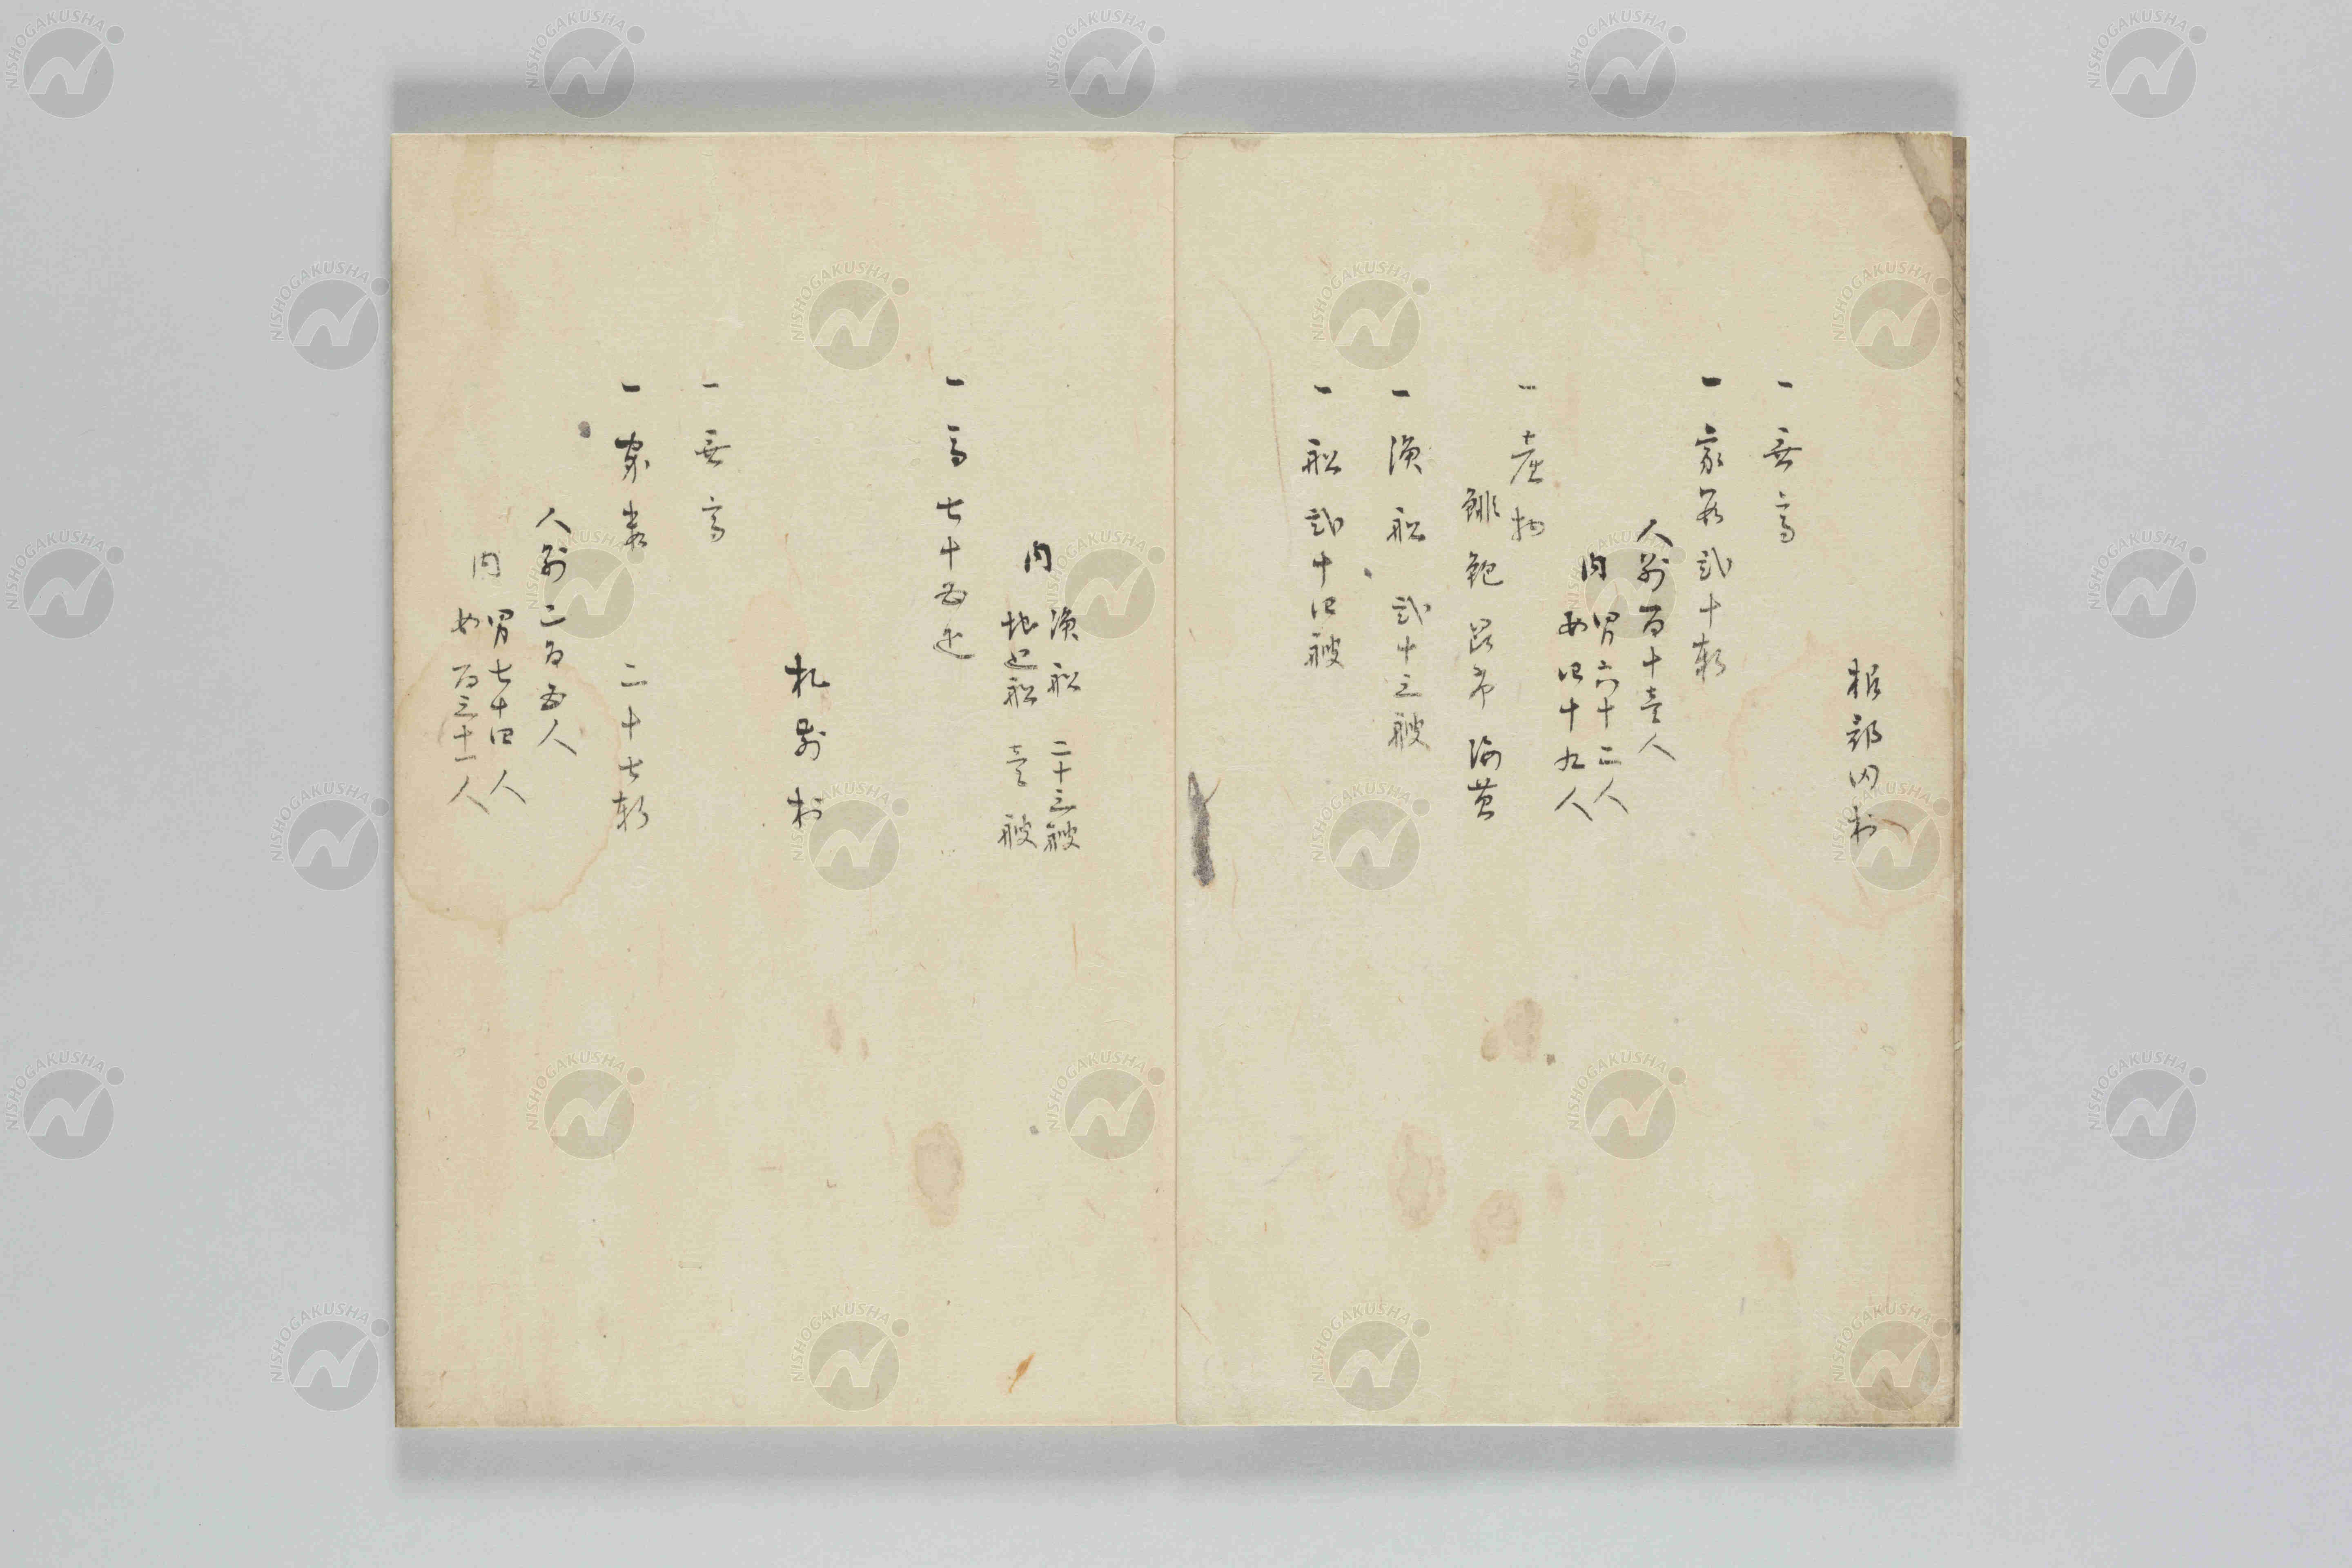 根部田村
一無高
一家数弐十軒
人別百十壱人
内 男六十二人
女四十九人
一産物
鯡 鮑 昆布 海苔
一漁船 弐十三艘
一船弐十四艘
内 漁船 二十三艘
地廻船 壱艘
一馬七十五疋
札前村
一無高
一家数 二十七軒
人別二百五人
内 男七十四人
女百三十一人
NISHOGAKUSHA